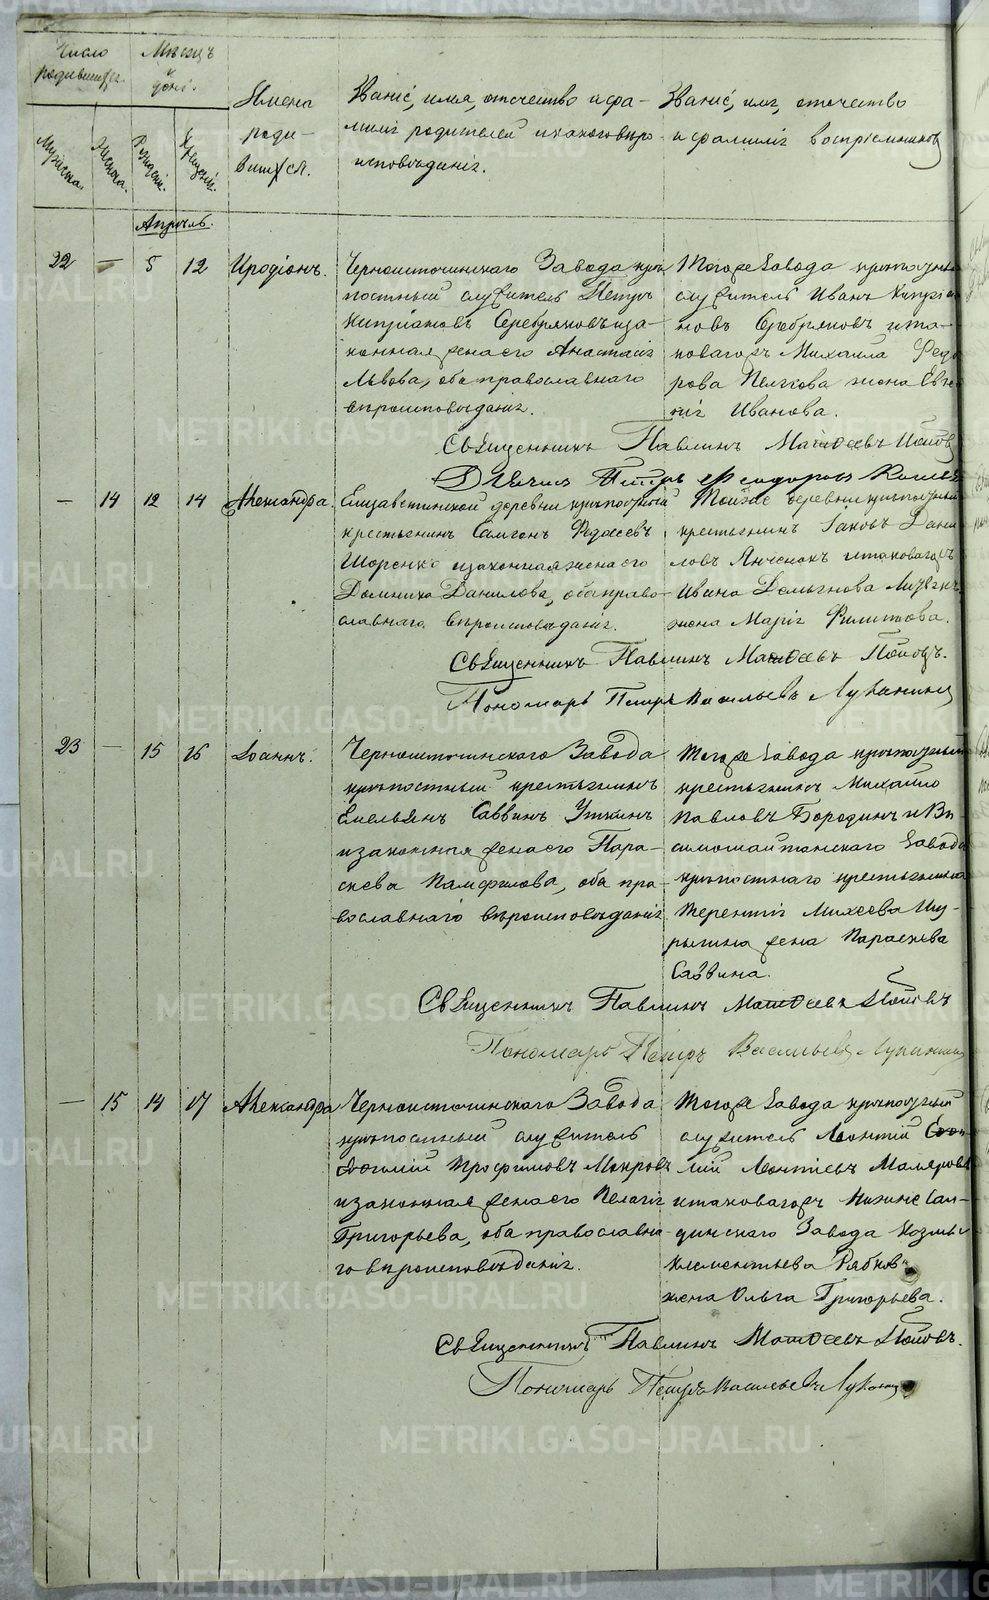 Число родившихся. Мѣсяцъ и день.
Мужеска. Женска. Рожденія. Крещенія.
Имена роди-
вшихся.
Званіе, имя, отечество и фа-
милія родителей и какого вѣро-
исповѣданія.
Званіе, имя, отечество
и фамилія воспріемниковъ
Апрѣль.
22 — 5 12 Иродіонъ.
Черноисточинскаго Завода крѣ-
постный служитель Петръ
Кипріановъ Серебряковъ и за-
конная жена его Анастасія
Львова, оба православнаго
вѣроисповѣданія.
Тогоже Завода крѣпостный
служитель Иванъ Кипріа-
новъ Серебряковъ и та-
коваго-жъ Михаила Федо-
рова жена Евге-
нія Иванова.
Священникъ Павлинъ Матѳеевъ Поповъ
Дьячекъ Петръ Феодоровъ
— 14 12 14 Александра.
Елизаветинской деревни крѣпостный
крестьянинъ Самсонъ Федосеевъ
и законная жена его
Домника Данилова, оба право-
славнаго вѣроисповѣданія.
Тойже деревни крѣпостный
крестьянинъ Іаковъ Дани-
ловъ и таковаго-жъ
Ивана Демьянова
жена Марія Филипова.
Священникъ Павлинъ Матѳеевъ Поповъ.
Пономарь Петръ Васильевъ Луканинъ
23 — 15 16 Іоаннъ.
Черноисточинскаго Завода
крѣпостный крестьянинъ
Емельянъ Саввинъ Уткинъ
и законная жена его Пара-
скева Памфилова, оба пра-
вославнаго вѣроисповѣданія
Тогоже Завода крѣпостный
крестьянинъ Михаило
Павловъ Бородинъ и Ви-
симошайтанскаго Завода
крѣпостнаго крестьянина
Терентія Михеева Шу-
рыгина жена Параскева
Саввина.
Священникъ Павлинъ Матѳеевъ Поповъ
Пономарь Петръ Васильевъ Луканинъ
— 15 14 17 Александра
Черноисточинскаго Завода
крѣпостный служитель
Василій Трофимовъ Мокровъ
и законная жена его Пелагія
Григорьева, оба православна-
го вѣроисповѣданія.
Тогоже Завода крѣпостный
служитель Леонтій
Леонтіевъ Маляровъ
и таковаго-жъ Нижне Сал-
динскаго Завода Козмы
Климентьева Рябков
жена Ольга Григорьева.
Священникъ Павлинъ Матѳеевъ Поповъ.
Пономарь Петръ Васильевъ Луканинъ
METRIKI.GASO-URAL.RU